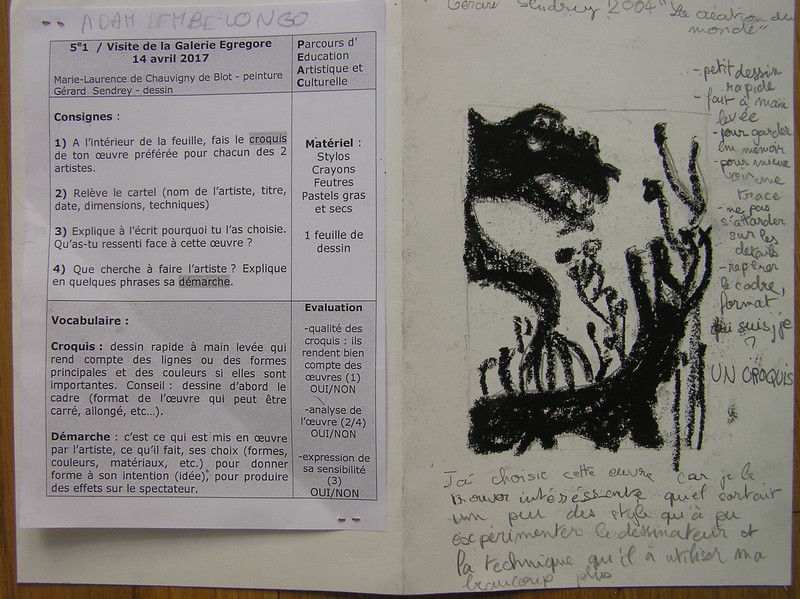 ADAM BEMBE-LONGO
5e1 / Visite de la Galerie Egregore
14 avril 2017
Marie-Laurence de Chauvigny de Blot - peinture
Gérard Sendrey - dessin
Parcours d'
Education
Artistique et
Culturelle
Consignes :
1) A l'intérieur de la feuille, fais le croquis
de ton œuvre préférée pour chacun des 2
artistes.
2) Relève le cartel (nom de l'artiste, titre,
date, dimensions, techniques)
3) Explique à l'écrit pourquoi tu l'as choisie.
Qu'as-tu ressenti face à cette œuvre ?
4) Que cherche à faire l'artiste ? Explique
en quelques phrases sa démarche.
Matériel :
Stylos
Crayons
Feutres
Pastels gras
et secs
1 feuille de
dessin
Vocabulaire :
Croquis : dessin rapide à main levée qui
rend compte des lignes ou des formes
principales et des couleurs si elles sont
importantes. Conseil : dessine d'abord le
cadre (format de l'œuvre qui peut être
carré, allongé, etc...).
Démarche : c'est ce qui est mis en œuvre
par l'artiste, ce qu'il fait, ses choix (formes,
couleurs, matériaux, etc.) pour donner
forme à son intention (idée), pour produire
des effets sur le spectateur.
Evaluation
-qualité des
croquis : ils
rendent bien
compte des
œuvres (1)
OUI/NON
-analyse de
l'œuvre (2/4)
OUI/NON
-expression de
sa sensibilité
(3)
OUI/NON
Gérard Sendrey 2004 "La création du
monde"
- petit dessin
rapide
- fait à main
levée
- pour garder
en mémoir
- pour mieux
voir une
trace
- ne pas
s'attarder
sur les
détails
- repérer
le cadre,
format
qui suis, je
?
UN CROQUIS
J'ai choisie cette œuvre car je la
trouver intéréssente quel sortait
un peu des style qu'à pu
expérimenter le dessinateur et
la technique qu'il à utiliser ma
beaucoup plus